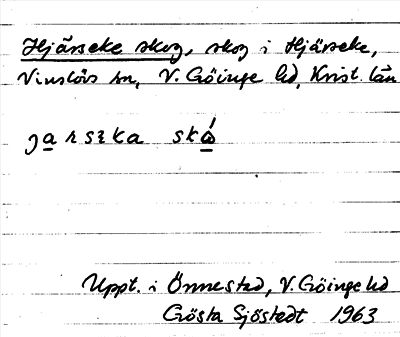 Hjärseke skog, skog i Hjärseke,
Vinslövs sn, V. Göinge hd, Krist. län
jarsɛka skó
Uppt. i Önnestad, V. Göinge hd
Gösta Sjöstedt 1963